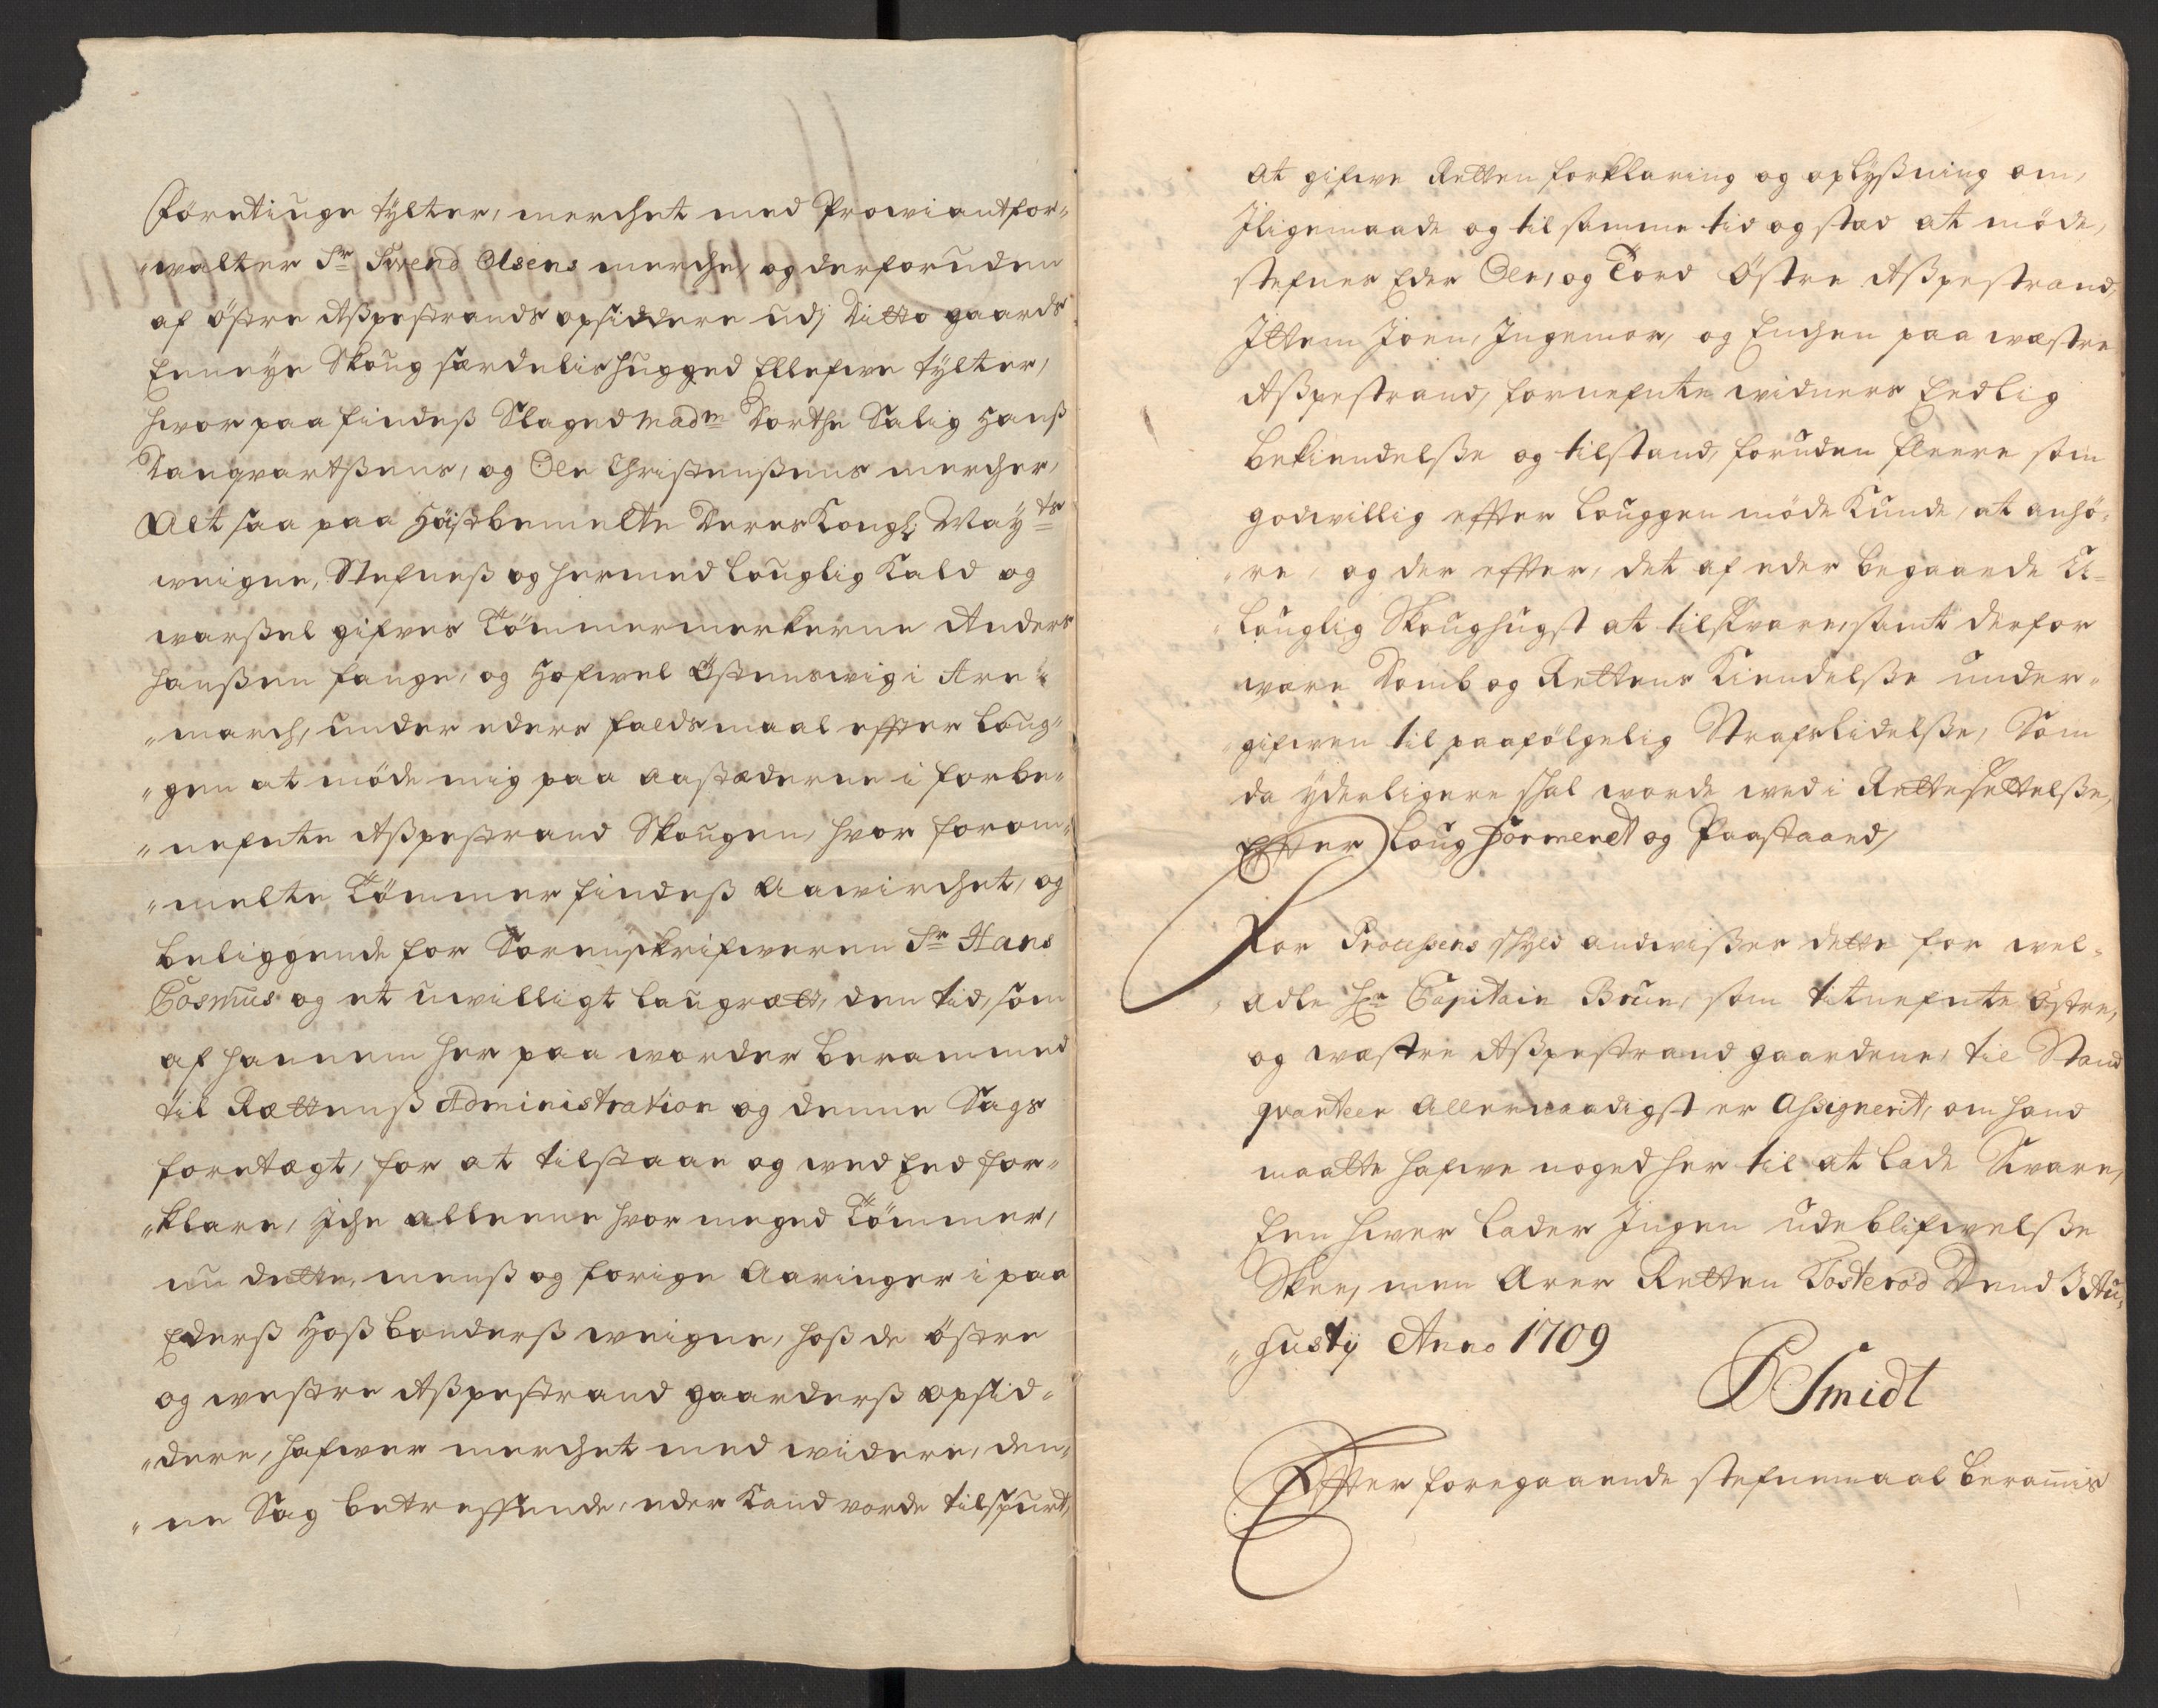 Försetiuge tylter, merchet med Prowiantfor-
"walter Sr Svend Olsens merche, og derforuden
af östre Asspestrands opsiddere udj Ditto gaards
Enneÿe Skoug særdelis hugged Ellefwe tylter,
hvor paa findeß Slaged Madm Dorthe Salig Hanß
Danqvartßens, og Ole Christenßens mercher,
Alt saa paa Höÿstbemelte Deres Kongl: Maÿts
weigne, Stefneß og hermed louglig Kald og
warßel gifves Tömmermerkerne Anders
Hanßen fange, og Hofwel Östenswig i Are-
"march, under eders faldsmaal effter loug-
"gen at möde mig paa aastæderne i forbe-
"nefnte Aßpestrand Skougen, hvor forom-
"melte Tömmer findeß Aawirchet, og
beliggende for Sorenskrifweren Sr Hans
Cosmus og et uwilligt laugrætt, den tid, som
af hannem her paa worder berammed
til Rættenß Administration og denne Sags
foretægt, for at tilstaae og wed Eed for-
"klare, Iche alleene hvor meged Tömmer,
nu dette, menß og forige Aaringer i paa
Ederß Hoßbonderß weigne, hoß de östre
og westre Aßpestrand gaarderß opsid-
"dere, hafwer merchet med widere, den-
"ne Sag betreffende, eder Kand vorde tilspurt,
at gifwe Retten forklaring og oplyßning om,
Iligemaade og til samme tid og stad at möde,
stefnes Eder Ole, og Tord Östre Aßpestrand,
Ittem Joen, Ingemor, og Enchen paa wæstre
Aßpestrand, fornefnte widners Eedlig
bekiendelße og tilstand, foruden fleere som
godwillig effter Louggen möde Kunde, at anhö-
"re, og der effter, det af eder begaaende U-
"louglig Skoughugst at tilsvare, samt derfor
være Domb og Rettens Kiendelße under-
"gifwen til paafölgelig Strafs lidelße, Som
da ÿderligere skal worde wed i Rettesettelße,
Effter Loug formeret og Paastaaed,
For Processens skyld andvißer dette for wel-
"adle Hr Capitain Brun, som titnefnte Östre,
og wæstre Aßpestrand gaardene, til Stand
qvarteer Allernaadigst er Assignerit, om hand
maatte hafwe noged her til at lade Svare,
Een hver lader Ingen udeblifwelße
Skee, men Ærer Retten Tosterød Dend 3 Au-
"gustÿ Anno 1709
Smidt
Effter foregaaende stefnemaal beramis